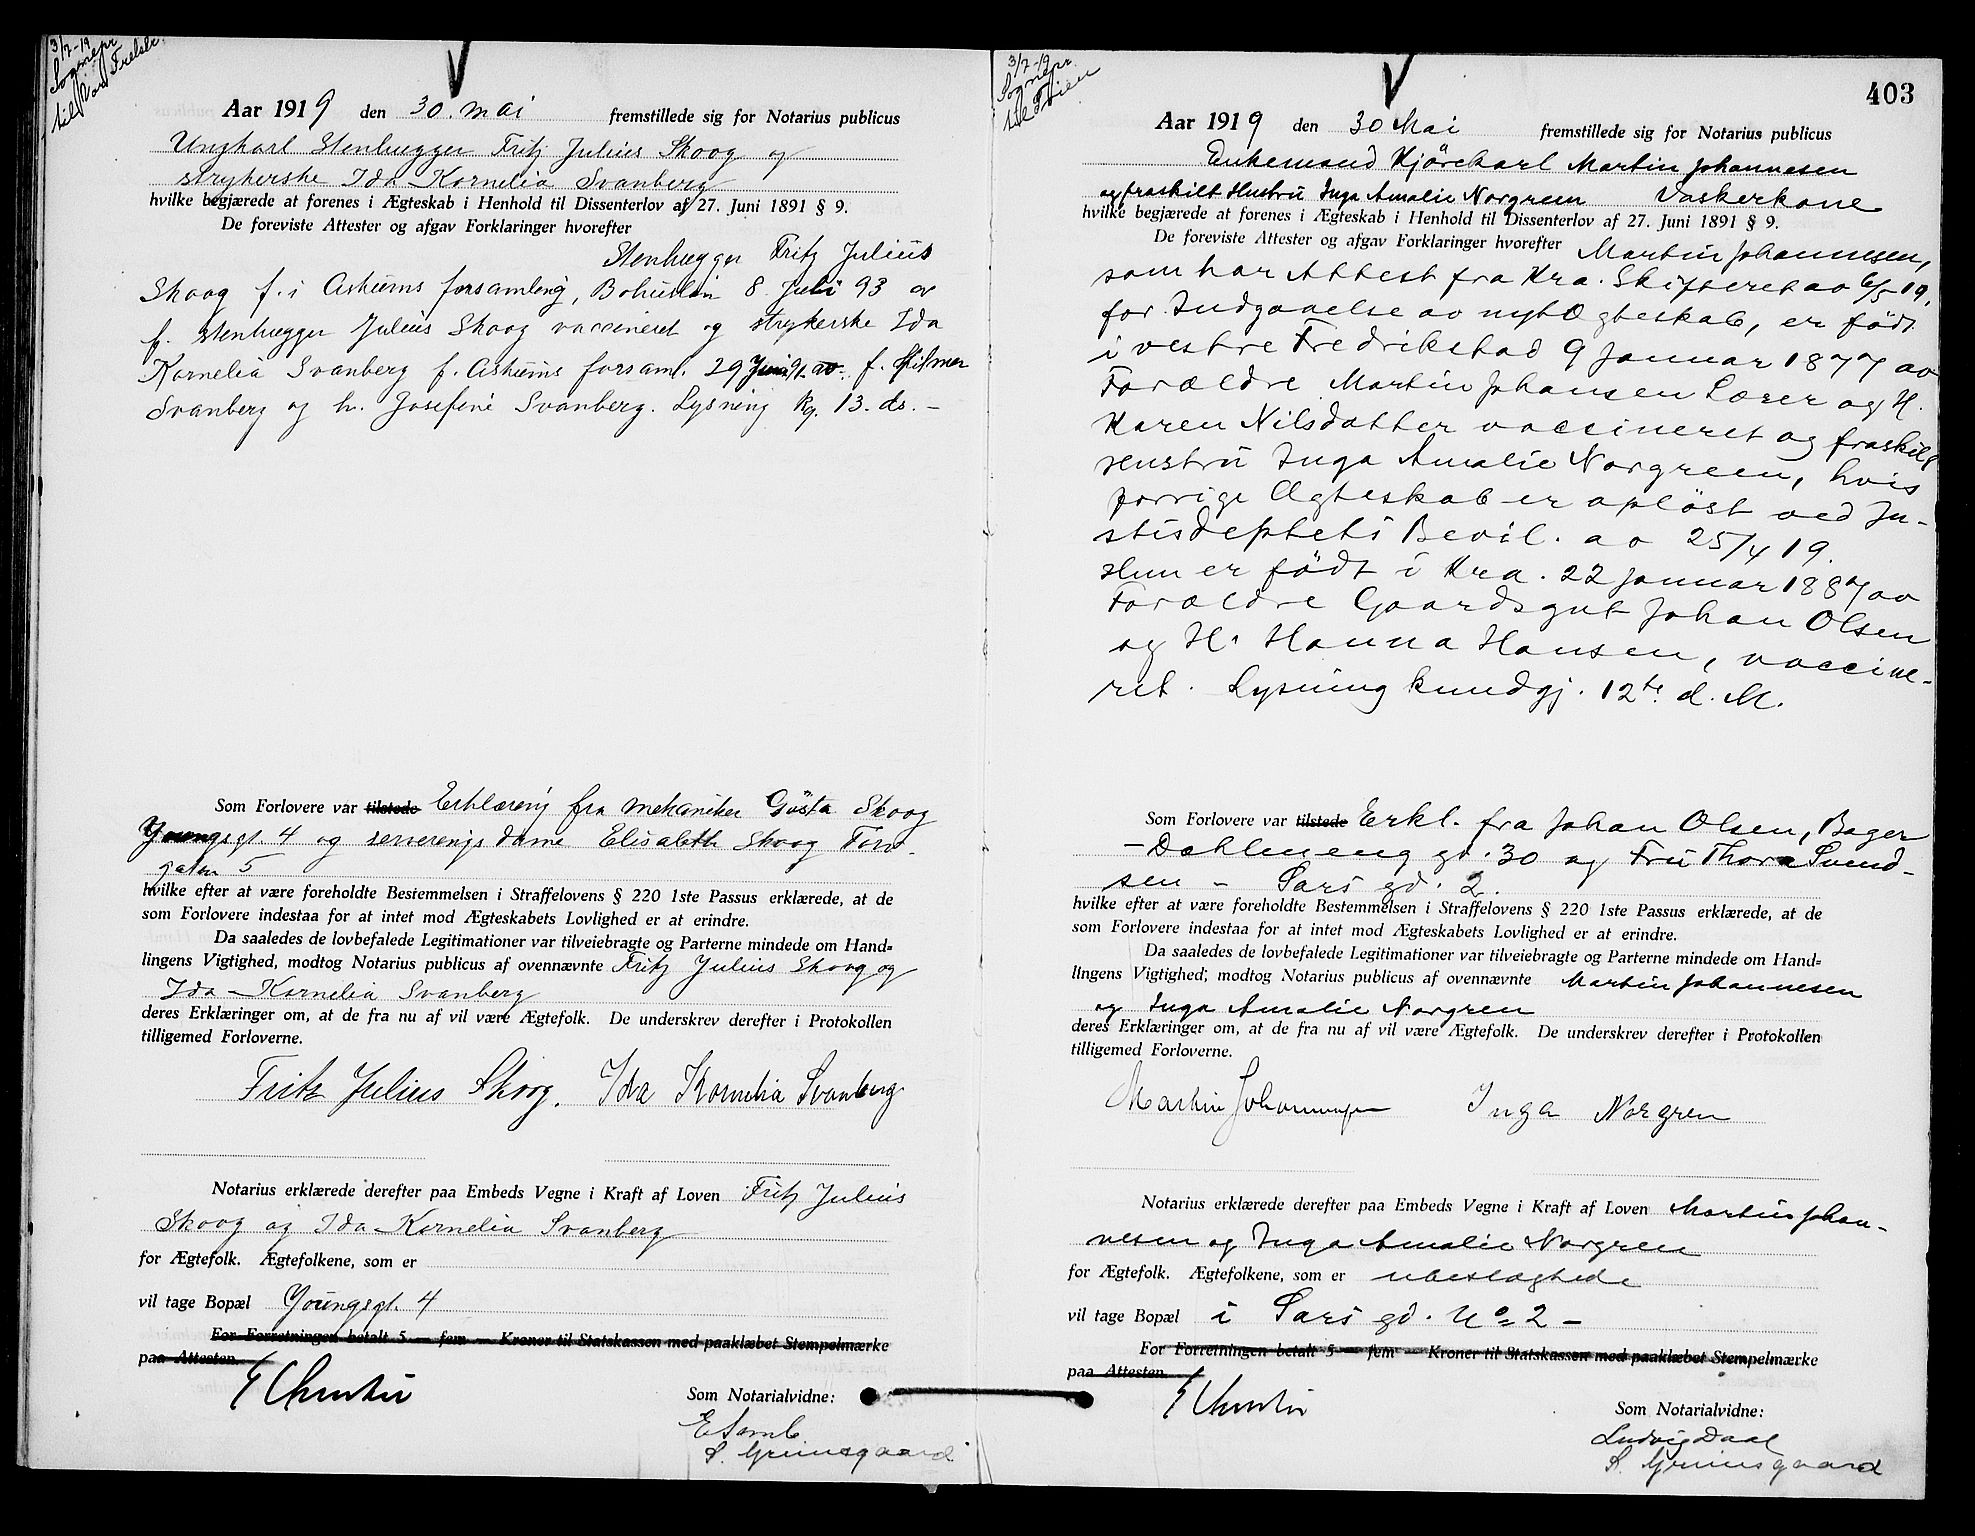 3/7-19
Sognepr
til Vor Frelser
Aar 1919 den 30. mai fremstillede sig for Notarius publicus
Ungkarl Stenhugger Fritz Julius Skoog og
strykerske Ida Kornelia Svanberg
hvilke begjærede at forenes i Ægteskab i Henhold til Dissenterlov af 27. Juni 1891 § 9.
De foreviste Attester og afgav Forklaringer hvorefter
Stenhugger Fritz Julius
Skoog f. i Askums forsamling, Bohuslen 8 Juli 93 av
f. stenhugger Julius Skoog vaccineret og strykerske Ida
Kornelia Svanberg f. Askums forsaml. 29 Juni 91 av f. Hilmer
Svanberg og h. Josefine Svanberg. Lysning kg. 13. ds. –
Som Forlovere var tilstede Erklæring fra mekaniker Gösta Skoog
Youngsgt. 4 og serverings dame Elisabeth Skoog Torv
gaten 5
hvilke efter at være foreholdte Bestemmelsen i Straffelovens § 220 1ste Passus erklærede, at de
som Forlovere indestaa for at intet mod Ægteskabets Lovlighed er at erindre.
Da saaledes de lovbefalede Legitimationer var tilveiebragte og Parterne mindede om Hand=
lingens Vigtighed, modtog Notarius publicus af ovennævnte Fritz Julius Skoog og
Ida Kornelia Svanberg
deres Erklæringer om, at de fra nu af vil være Ægtefolk. De underskrev derefter i Protokollen
tilligemed Forloverne.
Fritz Julius Skoog. Ida Kornelia Svanberg
Notarius erklærede derefter paa Embeds Vegne i Kraft af Loven Fritz Julius
Skoog og Ida Kornelia Svanberg
for Ægtefolk. Ægtefolkene, som er
vil tage Bopæl Youngsgt. 4
For Forretningen betalt 5 — fem — Kroner til Statskassen med paaklæbet Stempelmærke
paa Attesten.
Som Notarialvidne:
S. Grimsgaard
3/7-19
Sognepr.
403
Aar 1919 den 30 Mai fremstillede sig for Notarius publicus
Enkemand Kjörekarl Martin Johannesen
og fraskilt Hustru Inga Amalie Norgreen Vaskerkone
hvilke begjærede at forenes i Ægteskab i Henhold til Dissenterlov af 27. Juni 1891 § 9.
De foreviste Attester og afgav Forklaringer hvorefter Martin Johannesen,
som har Attest fra Kra. Skifteret av 6/5 19.
for Indgaaelse av nyt Ægteskab, er födt
i vestre Fredrikstad 9 Januar 1877 av
Forældre Martin Johansen Særer og H.
Karen Nilsdatter vaccineret og fraskilt
Hustru Inga Amalie Norgreen, hvis
forrige Ægteskab er oplöst ved Ju-
stisdeptets Bevil. av 25/4 19.
Hun er födt i Kra. 22 Januar 1887 av
Forældre Gaardsgut Johan Olsen
og H. Hanna Hansen, vaccine-
ret. Lysning kundgj. 12te d. M.
Som Forlovere var tilstede Erkl. fra Johan Olsen, Bager
– Dahleneng gd. 30 og Fru Thora Svend-
sen – Sars gd. 2.
hvilke efter at være foreholdte Bestemmelsen i Straffelovens § 220 1ste Passus erklærede, at de
som Forlovere indestaa for at intet mod Ægteskabets Lovlighed er at erindre.
Da saaledes de lovbefalede Legitimationer var tilveiebragte og Parterne mindede om Hand=
lingens Vigtighed, modtog Notarius publicus af ovennævnte Martin Johannesen
og Inga Amalie Norgren
deres Erklæringer om, at de fra nu af vil være Ægtefolk. De underskrev derefter i Protokollen
tilligemed Forloverne.
Martin Johannesen Inga Norgren
Notarius erklærede derefter paa Embeds Vegne i Kraft af Loven Martin Johan-
nesen og Inga Amalie Norgren
for Ægtefolk. Ægtefolkene, som er ubeslægtede
vil tage Bopæl i Sars gd. No 2 –
For Forretningen betalt 5 — fem — Kroner til Statskassen med paaklæbet Stempelmærke
paa Attesten.
Som Notarialvidne:
Ludvig Daal
S. Grimsgaard